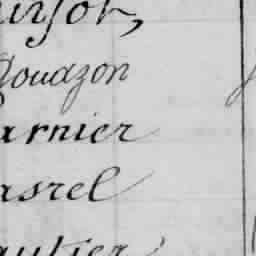 uisot,
Rouazon
arnier
asrel
autier